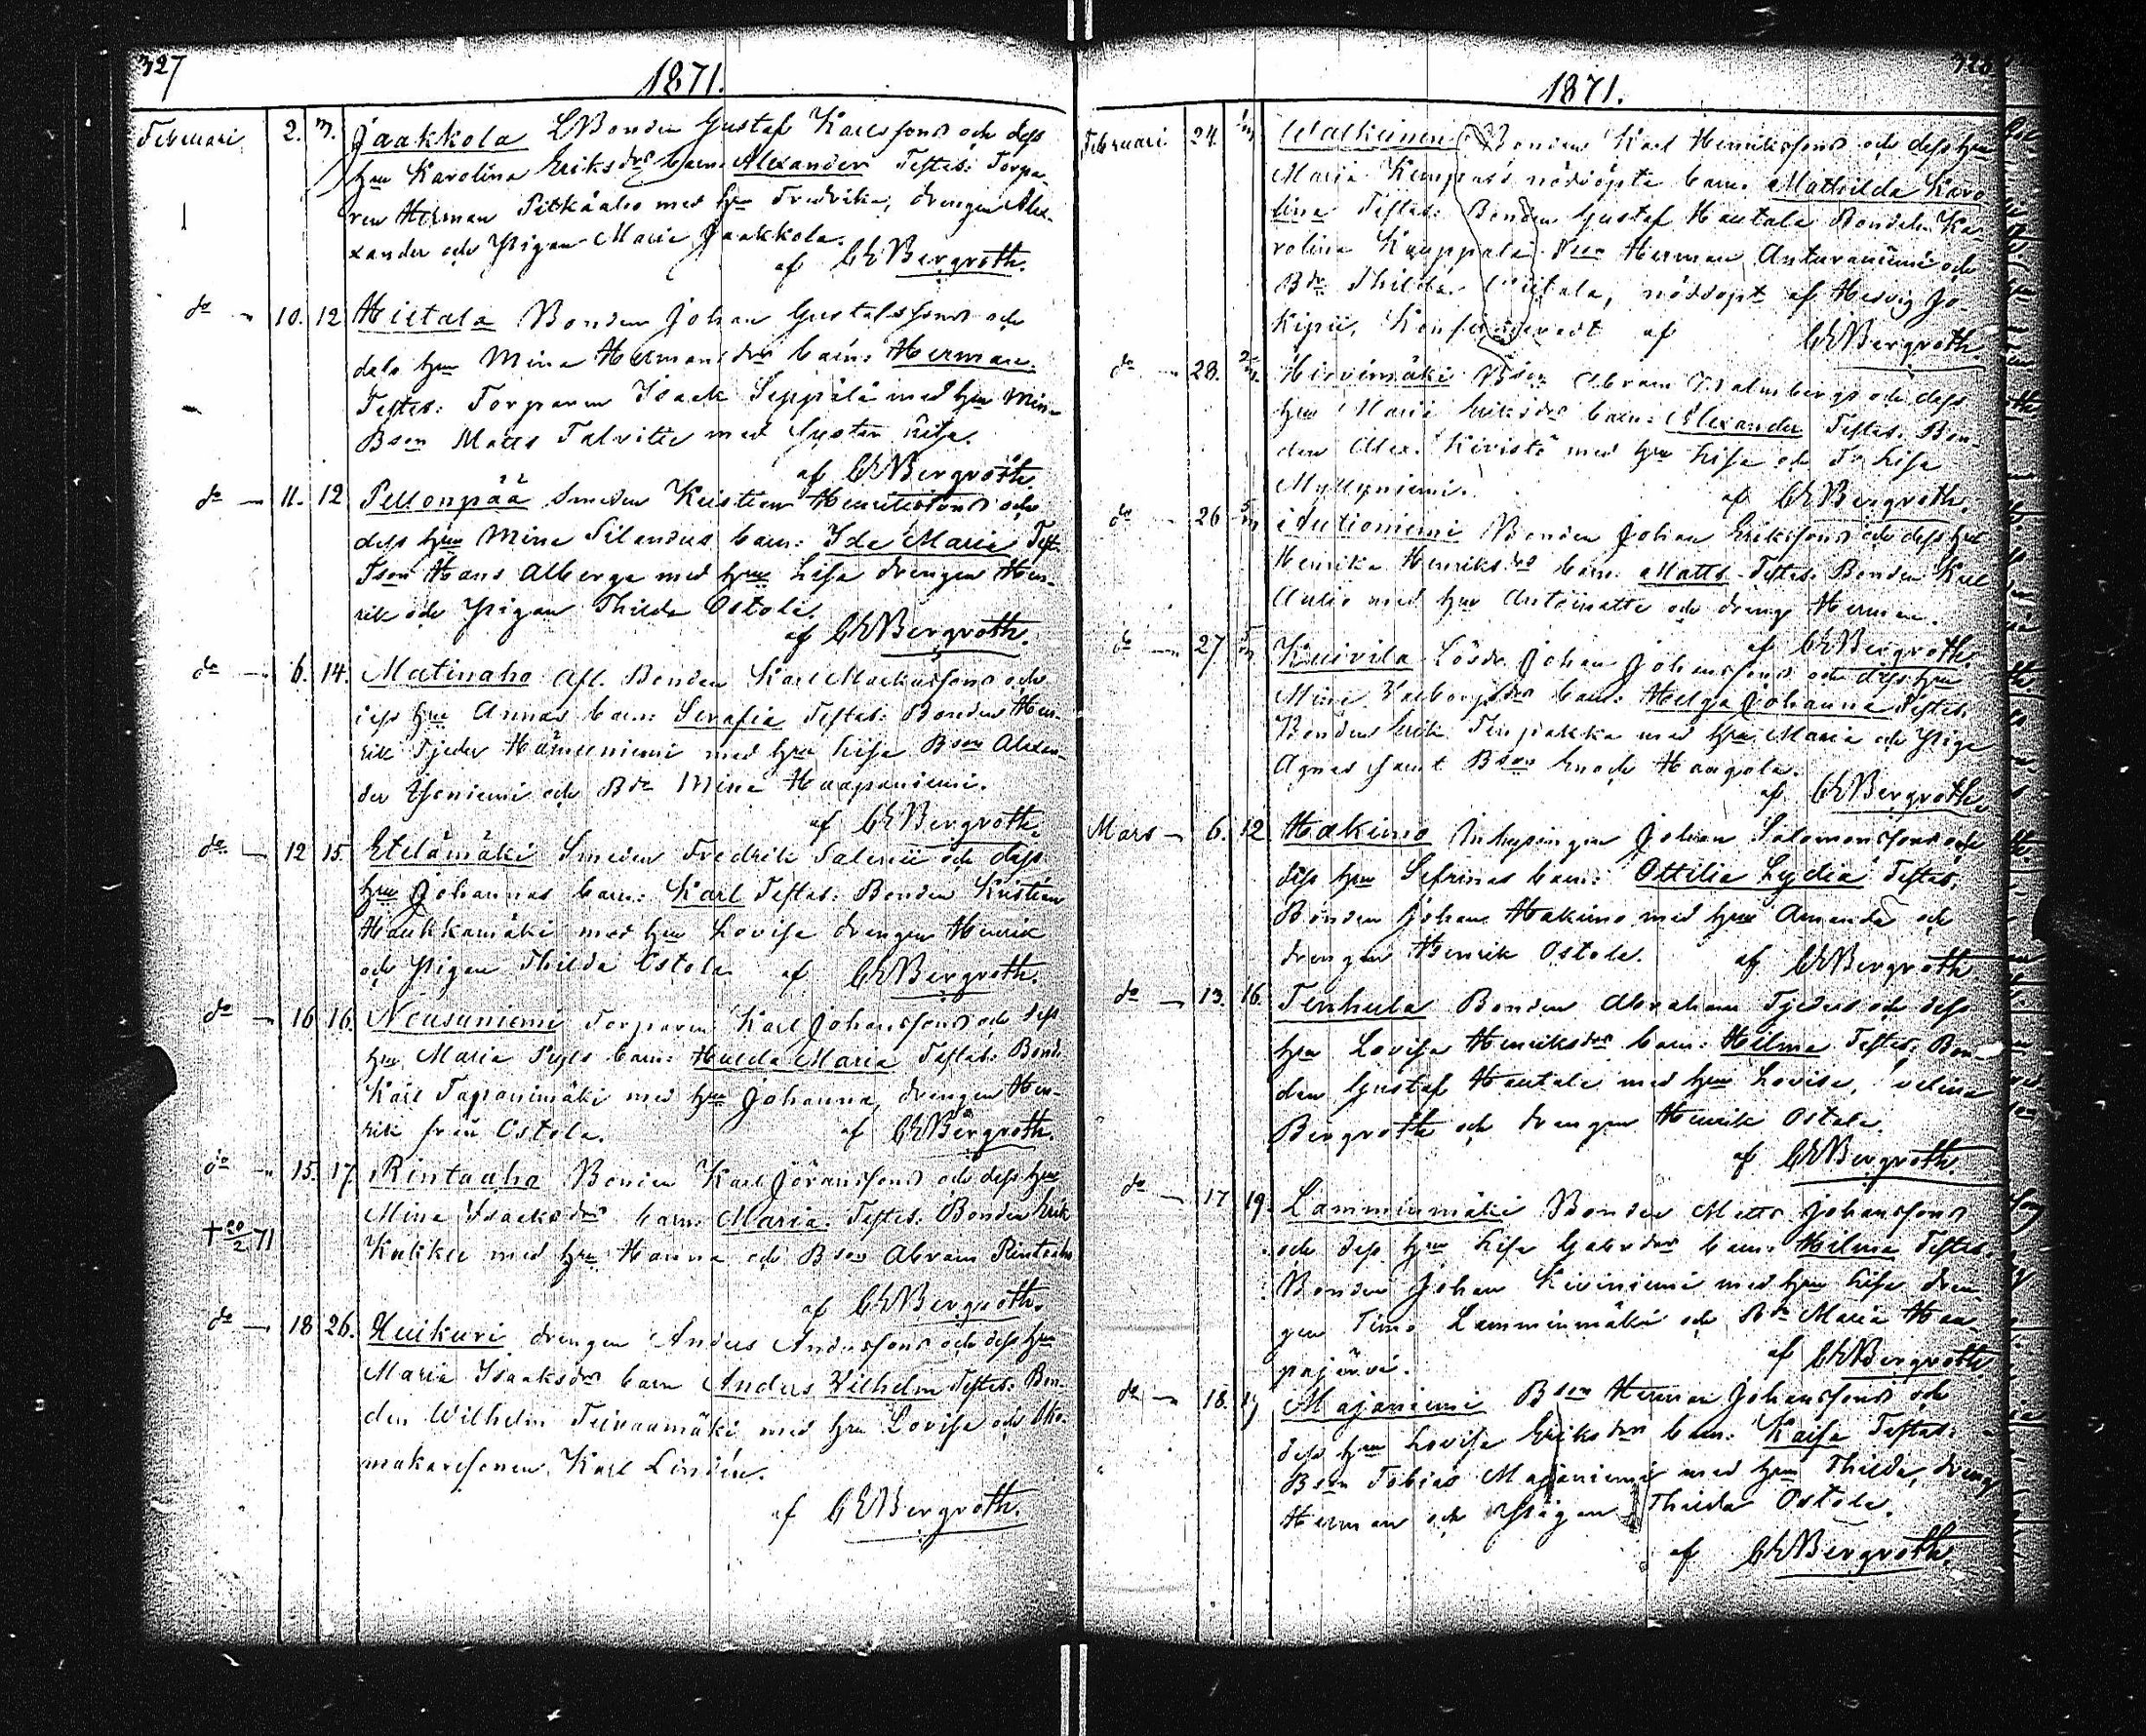 327
1871.
Februari 2. 3. Jaakkola LBonden Gustaf Karlssons och dess
hru Karolina Eriksdrs barn: Alexander Testes: Torpa-
ren Herman Pitkäaho med hru Fredrika, drengen Alex-
xander och Pigan Maria Jaakkola.
af CEBergroth.
do 10. 12 Hietala Bonden Johan Gustafssons och
dess hru Mina Hermansdrs barn: Herman.
Testes: Torparen Isaak Seppälä med hru Mina
Bson Matts Talvitie med
af CEBergroth.
do 11. 12 Pellonpää Smeden Kristian Henrikssons och
dess hru Mina Silandes barn: Ida Maria Test:
Tson Hans Alberga med hru Lisa drengen Hen-
rik och Pigan Thilda Ostola.
af CEBergroth.
do 6. 14. Matinaho Afl. Bonden Karl Markussons och
dess hru Annas barn: Serafia Testes: Bonden Hen-
rik Tjeder Hämeeniemi med hru Lisa Bson Alexan-
der och Bdr Mina Haapaniemi.
af CEBergroth.
do 12 15. Etelämäki Smeden Fredrik Salenii och dess
hru Johannas barn: Karl Testes: Bonden Kristian
Haukkamäki med hru Lovisa drengen Henrik
och Pigan Thilda Ostola af CEBergroth.
do 16 16. Neusuniemi Torparen Karl Johanssons och dess
hru Maria barn: Hulda Maria Testes: Bond:
Karl Tapanimäki med hru Johanna, drengen Hen-
rik från Ostola. af CEBergroth.
do 15. 17. Rintaaho Bonden Karl Jöranssons och dess hru
Mina Isaaksdrs barn: Maria. Testes: Bonden Erik
† 20/2 71 Kukko med hru Hanna och Bson Abram Rintaaho
af CEBergroth.
do 18 26. Huikuri drengen Anders Anderssons och dess hru
Maria Isaaksdrs barn Anders Vilhelm Testes: Bon-
den Wilhelm Teivaamäki med hru Lovisa och Sko-
makaresonen Karl Lindén.
af CEBergroth.
328
1871.
Februari 24. Walkeinen Bonden Karl Henrikssons och dess hru
Maria nöddöpte barn: Mathilda Karo-
lina Testes: Bonden Gustaf Hautala Bondeh. Ka-
rolina Kauppala Herman Anturaniemi och
Bdr Thilda Viitala, nöddöpt af Hedvig Jo-
kipii, Konfirmeradt af CEBergroth.
do 28. Hirvimäki Bson Abram Malmbergs och dess
hru Maria Eriksdrs barn: Alexander Testes: Bon-
den Alex. Kivistö med hru Lisa och Lisa
Myllyniemi. af CEBergroth.
do 26 Bonden Johan Erikssons och dess hru
Henrika Henriksdrs barn: Matts. Testes: Bonden Karl
Aulio med hru Antoinette och dreng Herman.
af CEBergroth.
do 27 Kuivila Lösdr. Johan Johanssons och dess hru
Mina barn: Helga Johanna Testes:
Bonden Erik med hru Maria och Piga
Agnes samt Bson Enoch Hangola.
af CEBergroth.
Mars 6. 12 Hakimo Inhysingen Johan Salomonssons och
dess hru Sefrinas barn: Ottilia Lydia Testes:
Bonden Johan Hakimo med hru Amanda och
drengen Henrik Ostola. af CEBergroth
do 13. 16. Tenhula Bonden Abraham Tjeders och dess
hru Lovisa Henriksdrs barn: Hilma Testes: Bon-
den Gustaf Hautala med hru Lovisa,
Bergroth och drengen Henrik Ostola.
af CEBergroth.
do 17 19. Lamminmäki Bonden Matts Johanssons
och dess hru Lisa Gabrdrs barn: Hilma Testes:
Bonden Johan Kiviniemi med hru Lisa dren-
gen Timo Lamminmäki och Bdr Maria Haa-
pajärvi. af CEBergroth.
do 18. 19 Majaniemi Bson Herman Johanssons och
dess hru Lovisa Eriksdrs barn: Kaisa Testes:
Bson Tobias Majaniemi med hru Thilda, dreng
Herman och Pigan Thilda Ostola.
af CEBergroth.